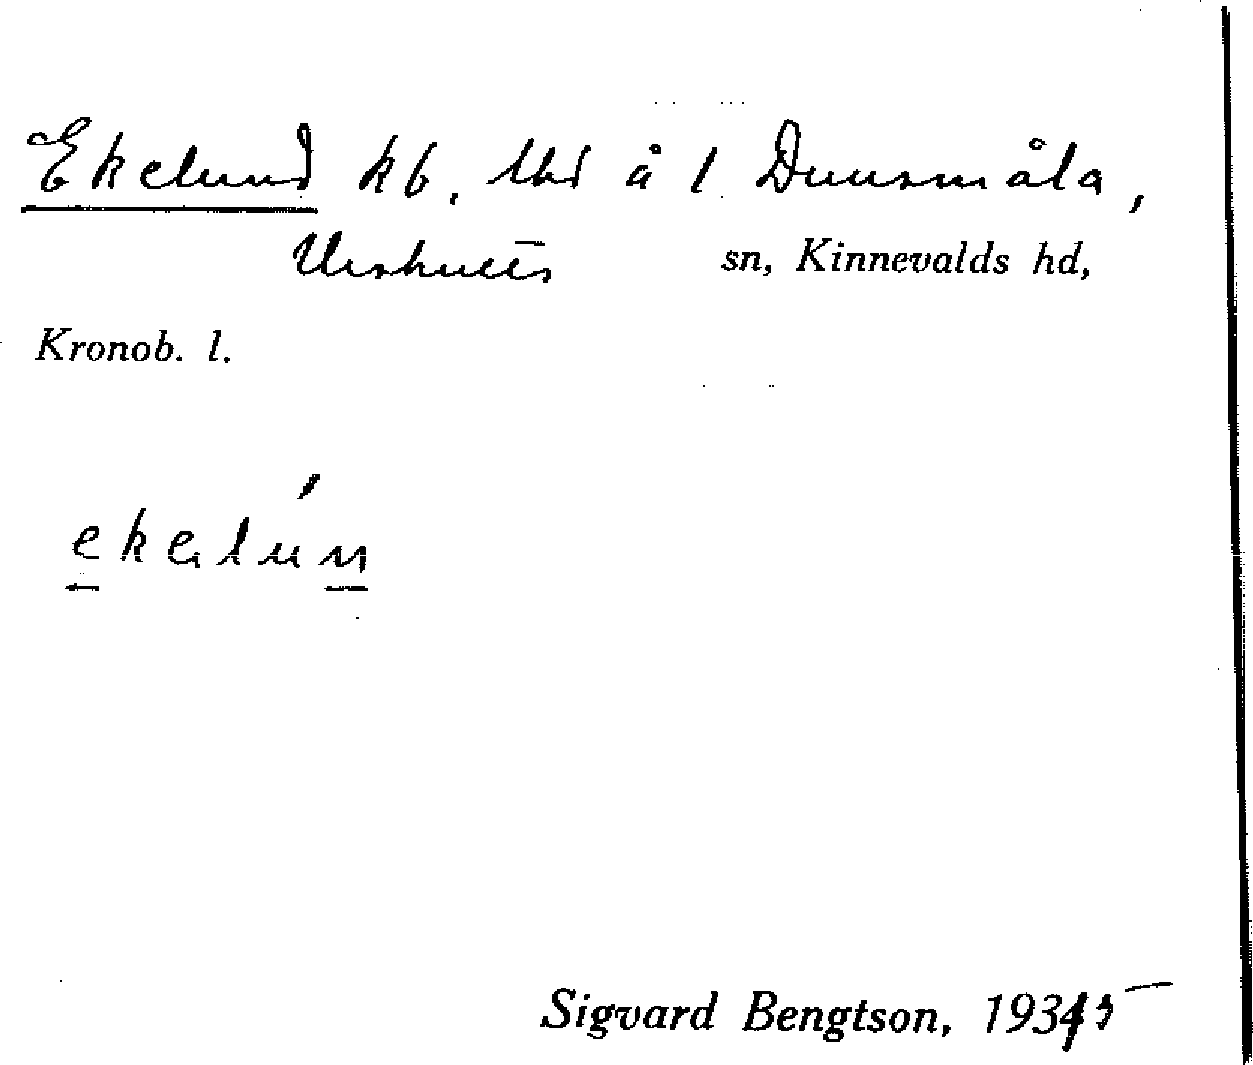 Ekelund kb, lhd å 1 Duusmåla,
Urshults sn, Kinnevalds hd,
Kronob. l.
ekəlún
Sigvard Bengtson, 1935